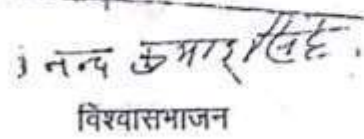 नन्द कुमार सिंह
विश्वासभाजन